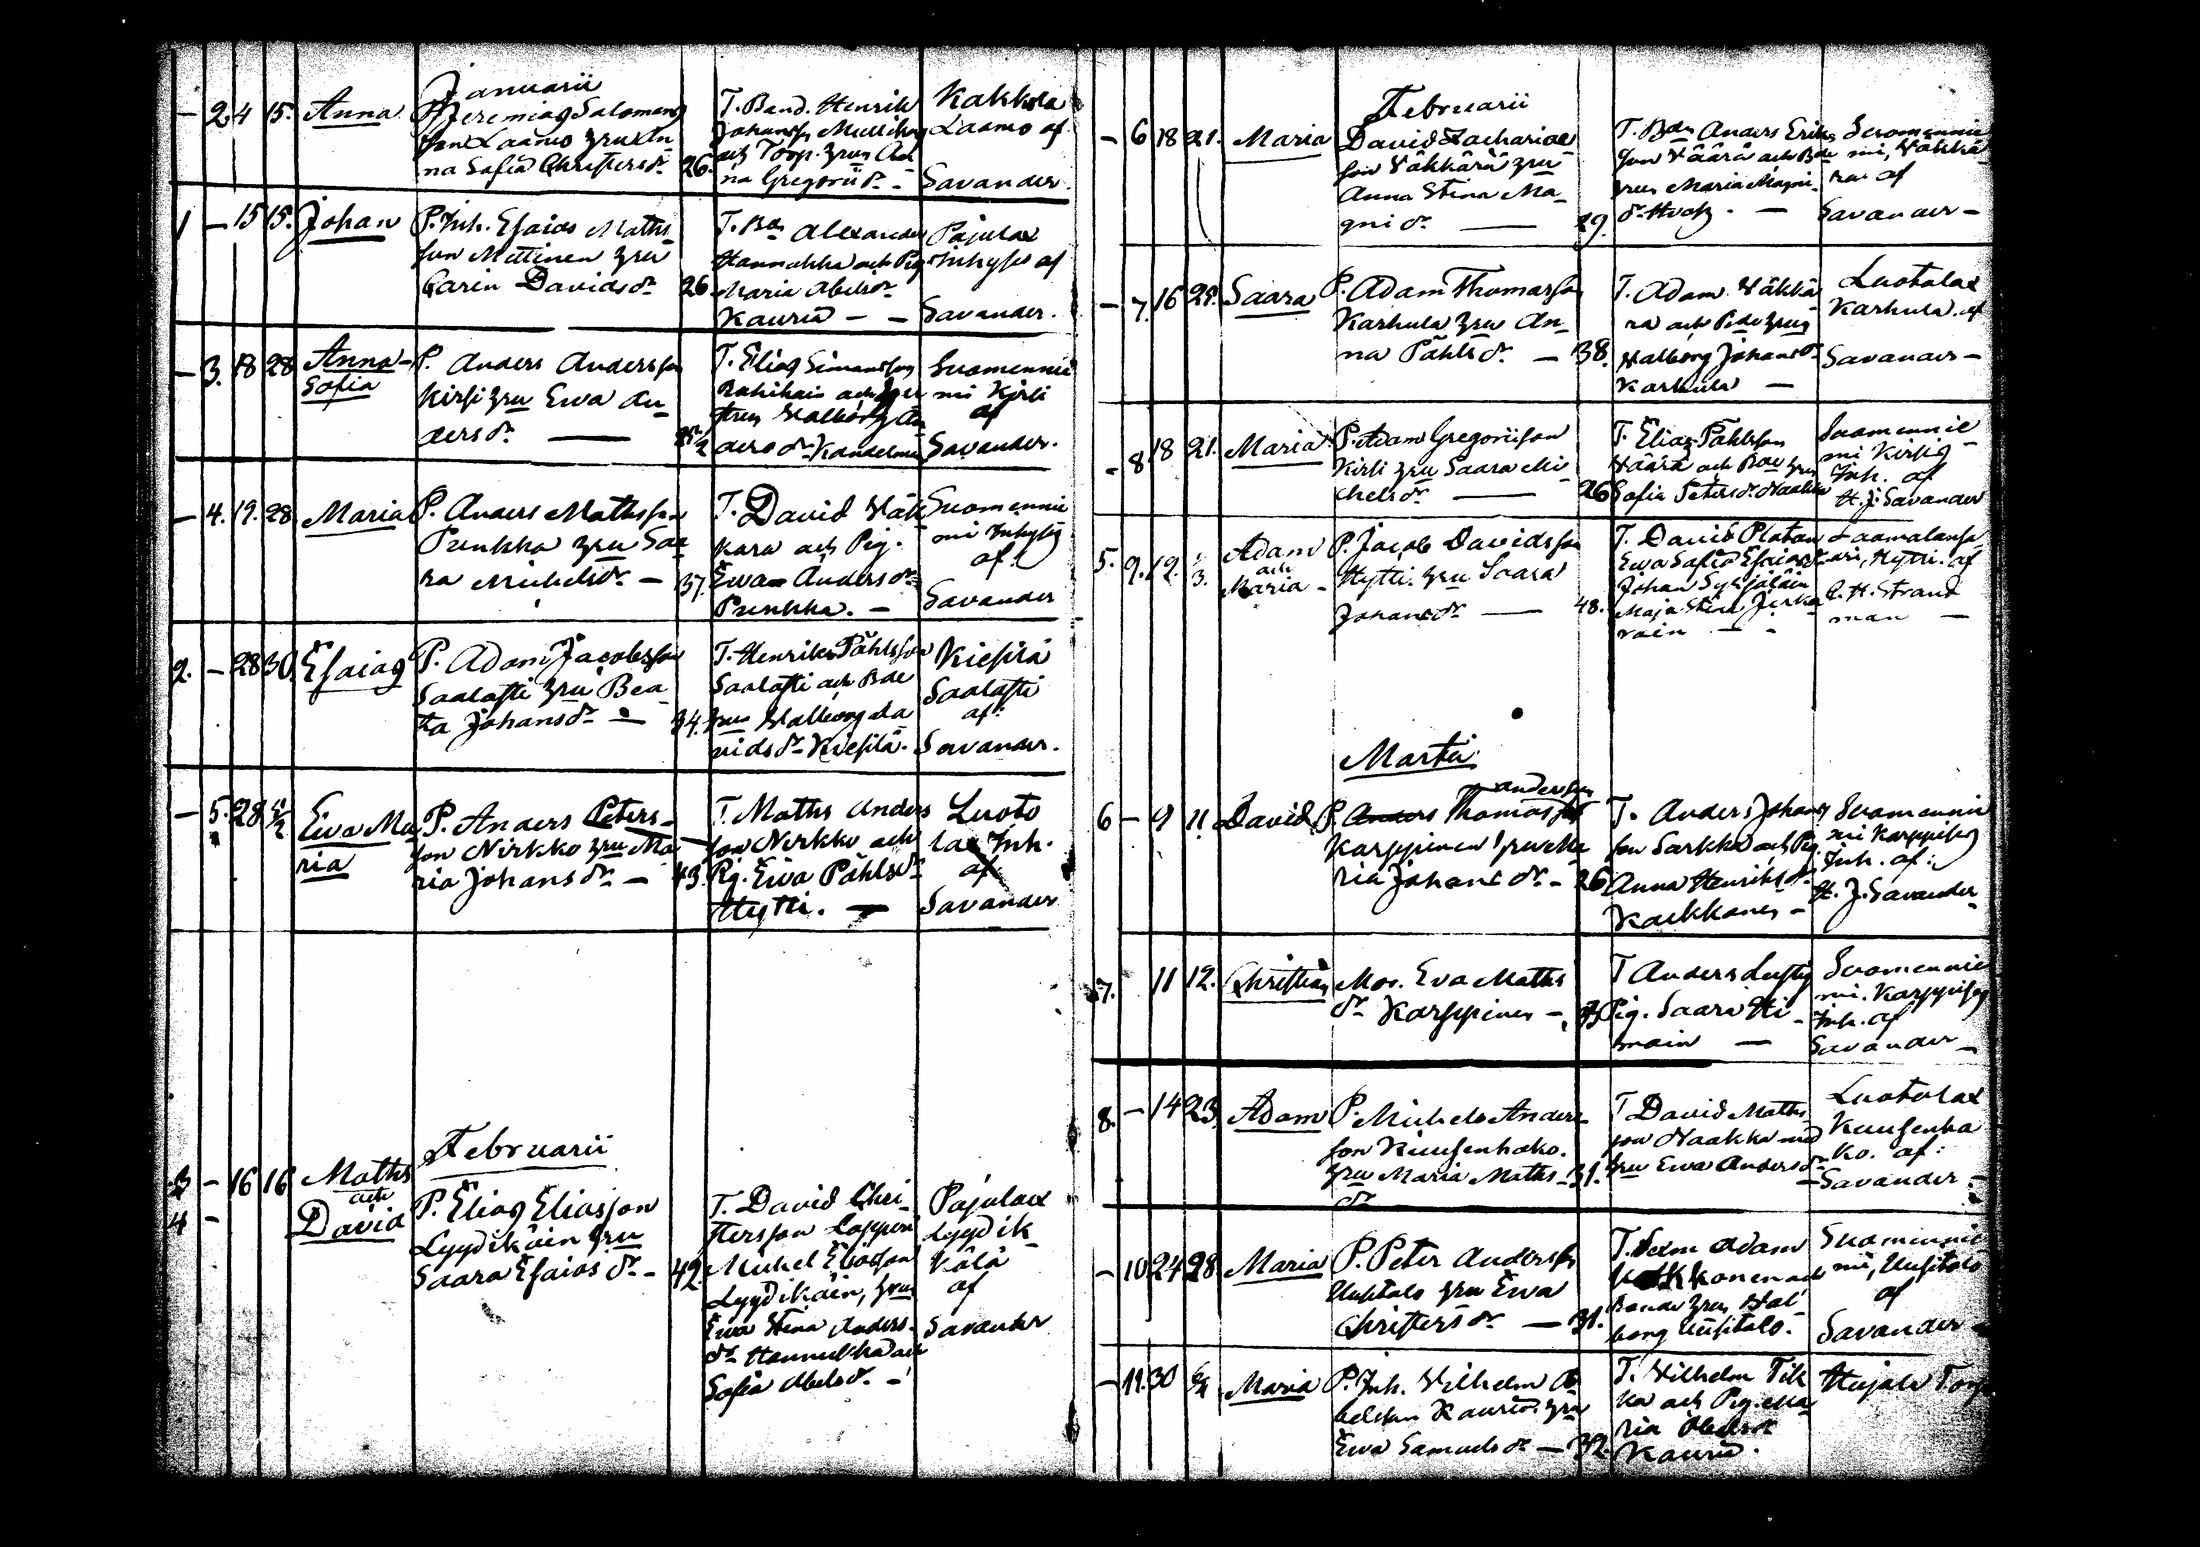 Januarii
- 2 4 15. Anna
Jeremias Salomons
son Laamo hru An
na Sofia Christersdr 26.
T. Bond. Henrik
Johansson
och Torp. hru An
na Gregoriidr -
Kakkola
Laamo af
Savander.
1 - 15 15. Johan
P. Inh. Esaias Maths
son Mettinen hru
Carin Davidsdr 26.
T. Bds Alexander
Hannukka och Pig
Maria Abelsdr
Kauria - -
Pajulax
Inhyses af
Savander.
- 3. 18 28 Anna-
Sofia
P. Anders Andersson
Kirsi hru Ewa An
dersdr -
T. Elias Simonsson
Rahikain och
hru Walborg An
dersdr
Suomennie
mi Kirsi
af
Savander.
- 4. 19. 28 Maria
P. Anders Mathsson
Punkka hru Saa
ra Michelsdr - 37.
T. David Wäk
kärä och Pig.
Ewa Andersdr
Punkka. -
Suomennie
mi Inhyses
af:
Savander
2. - 28 30 Esaias
P. Adam Jacobsson
Saalasti hru Bea
ta Johansdr - 34.
T. Henrik Påhlsson
Saalasti och Bde
hru Walborg Da
vidsdr Kiesilä.
Kiesilä
Saalasti
af:
Savander.
- 5. 28 1/2 Ewa Ma
ria
P. Anders Peters-
son Nirkko hru Ma
ria Johansdr - 43.
T. Maths Anders
son Nirkko och
Pig. Ewa Påhlsdr
Hytti. -
Luoto
lax Inh.
af
Savander
Februarii
3 - 16 16 Maths
och
4 - David
P. Elias Eliasson
Lyydikäin hru
Saara Esaiasdr - 42.
T. David Chri
stersson Lopperi
Michel Eliasson
Lyydikäin, hru
Ewa Stina Anders-
dr Hannukka och
Sofia Abelsdr. -
Pajulax
Lyydik
kälä
af
Savander
Februarii
- 6 18 21. Maria
David Zacharias
son Wäkkärä hru
Anna Stina Ma-
gnidr - 29.
T. Bds Anders Eriks
son Väärä och Bde
hru Maria Magni
dr -
Suomennie
mi, Wäkkä
rä af
Savander -
- 7. 16 21. Saara
P. Adam Thomasson
Karhula hru An-
na Påhlsdr. - 38.
T. Adam Wäkkä
rä och Bde hru
Walborg Johansdr
Karhula -
Luotolax
Karhula. af
Savander -
- 8. 18 21. Maria
P. Adam Gregoriison
Kirsi hru Saara Mi
chelsdr - 26
T. Elias Påhlsson
Väärä och Bde hru
Sofia Petersdr. Naakka
Suomennie
mi Kirsis
Inh. af
H. J. Savander
5. 9. 12. 1/3. Adam
och
Maria -
P. Jacob Davidsson
Hytti. hru Saara
Johansdr - 48.
T. David Platan
Ewa Sofia Esaiasdr
Johan Syrjäläin
Maja Stina Jerka
rain - -
Laamalansa
ari, Hytti. af
C. H. Strand
man -
Martii
6 - 9 11 David
andersson
P. Anders Thomasson
Karppinen hru Ma
ria Johansdr. - 26
T. Anders Johans
son Sarkka och Pig.
Anna Henriksdr
Kaukkanen -
Suomennie
mi Karppises
Inh. af:
H. J. Savander
7. 11 12. Christian
Mor. Eva Maths
dr Karppinen -
T Anders Lustig
Pig. Saara Hi-
main -
Suomennie
mi. Karppises
Inh. af
Savander -
8. - 14 23 Adam
P. Michels Anders
son Kuusenhako.
hru Maria Maths- 31.
dr
T David Maths
son Naakka med
hru Ewa Andersdr
Luotolax
Kuusenha
ko. af:
Savander -
- 10 24 28 Maria
P. Peter Andersson
Uusitalo hru Ewa
Christersdr - 31.
T. Adam
Kokkonen och
Bonde hru Wal
borg Uusitalo.
Suomennie
mi, Uusitalo
af
Savander -
- 11. 30 6/4 Maria
P. Inh. Wilhelm A
belsson Kauria. hru
Ewa Samuelsdr - 32.
T. Wilhelm Tik
ka och Pig. Ma
ria Abelsdr
Kauria.
Hujala Torp